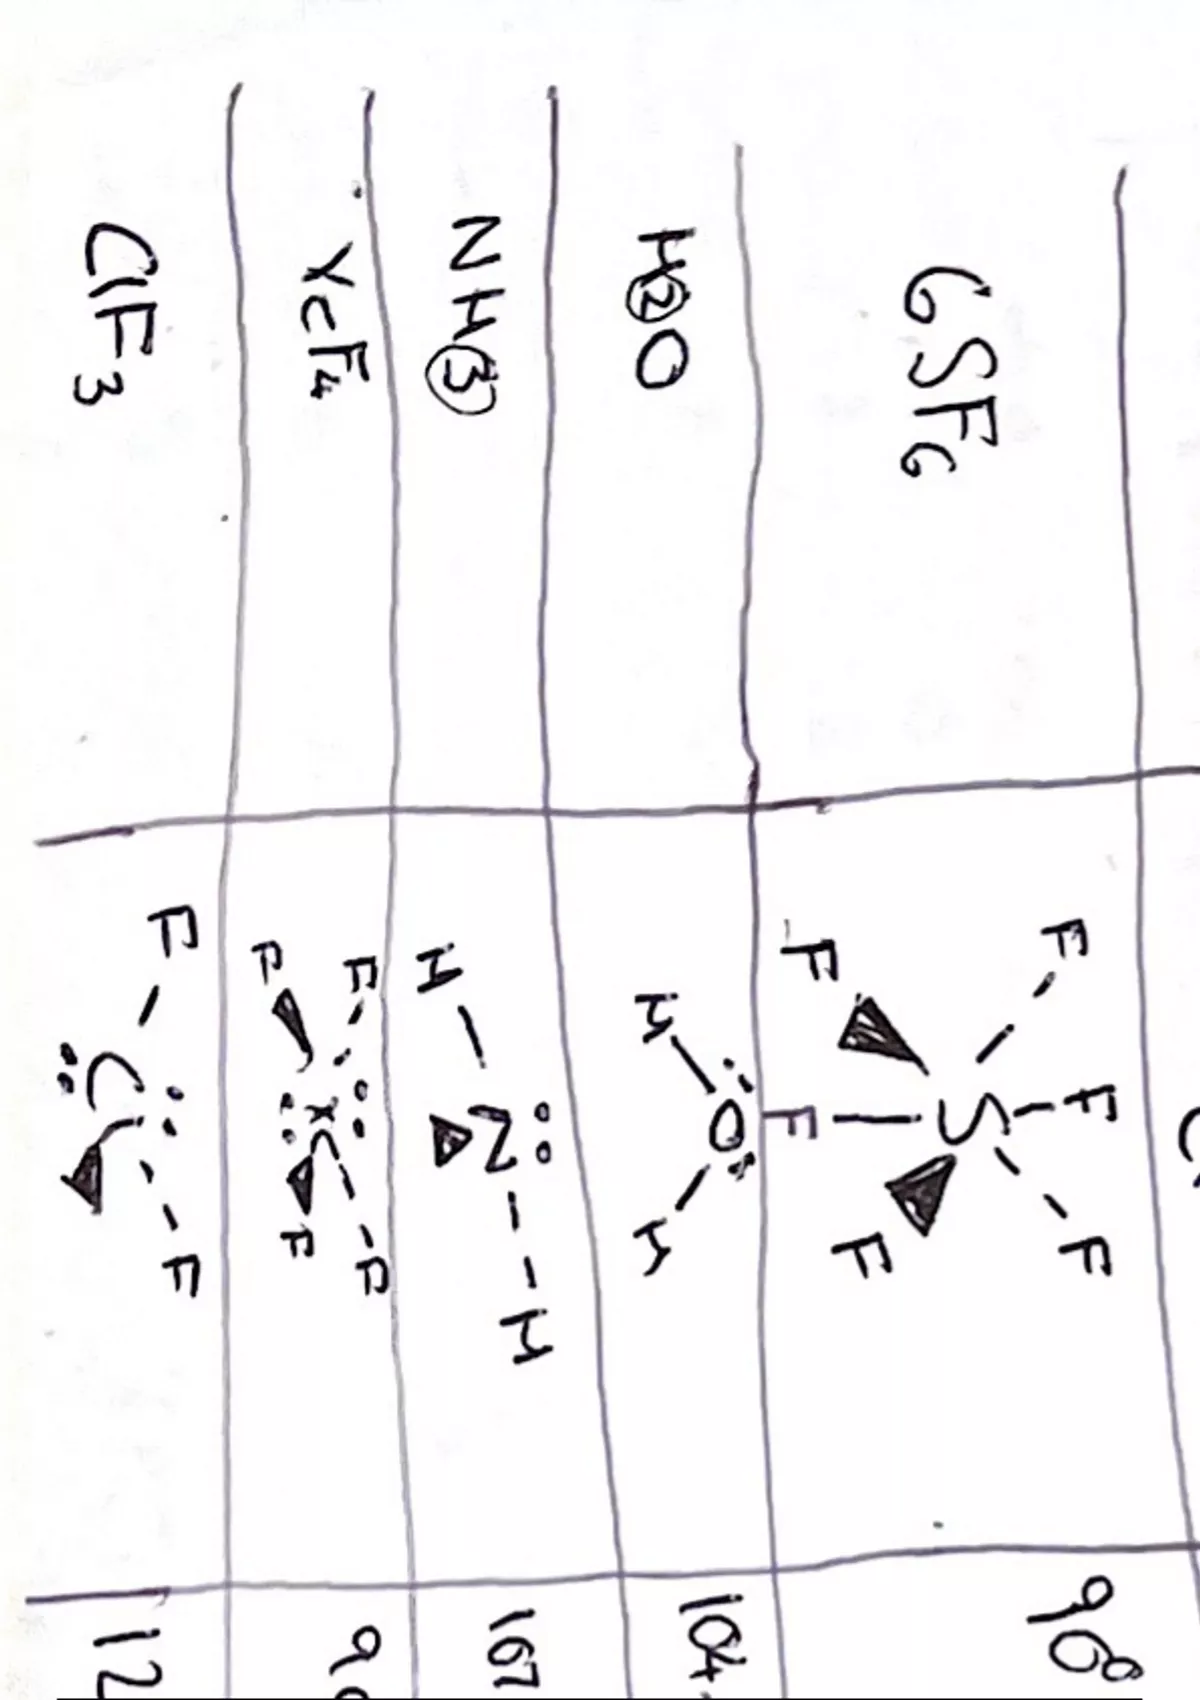 6SF6
F F F
S
F F F
90°
H2O
O
H H
104.
NH3
N H
H
107
XeF4
F F
Xe
F F
90
ClF3
F F
Cl
12